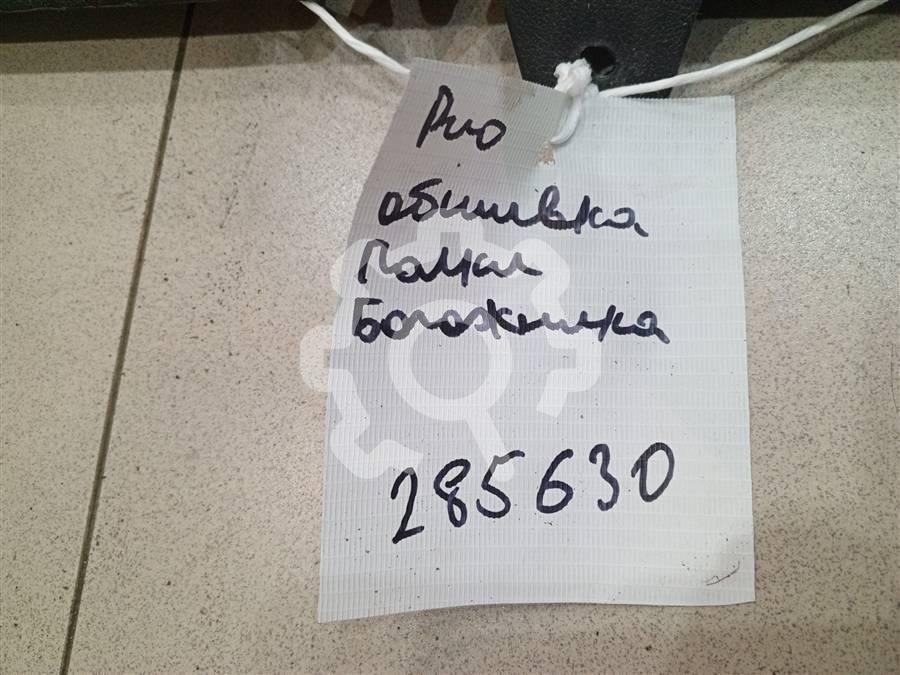 Рио
обшивка
Полки
Богожника
285630